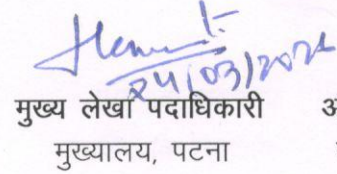 24/03/2026
मुख्य लेखा पदाधिकारी अ
मुख्यालय, पटना